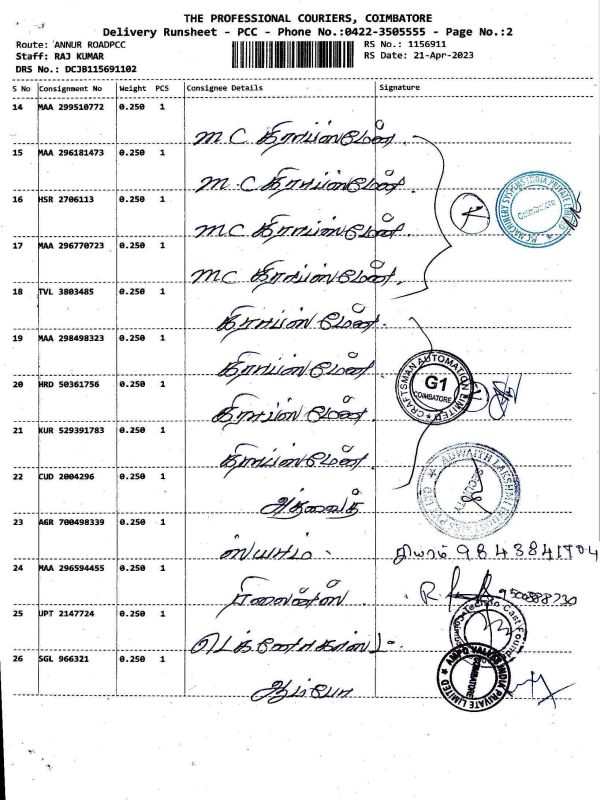 THE PROFESSIONAL COURIERS, COIMBATORE
Delivery Runsheet - PCC - Phone No.:0422-3505555 - Page No.:2
Route: ANNUR ROADPCC
RS No.: 1156911
Staff: RAJ KUMAR
RS Date: 21-Apr-2023
DRS No.: DCJB115691102
S No Consignment No Weight PCS Consignee Details Signature
14 MAA 299510772 0.250 1
M C கிராப்ஸ்மேன்
15 MAA 296181473 0.250 1
M C கிராப்ஸ்மேன்
16 HSR 2706113 0.250 1
M C கிராப்ஸ்மேன்
17 MAA 296770723 0.250 1
M C கிராப்ஸ்மேன்
18 TVL 3803485 0.250 1
கிராப்ஸ்மேன்
19 MAA 298498323 0.250 1
கிராப்ஸ்மேன்
CRAFTSMAN AUTOMATION LIMITED
G1
COIMBATORE
20 HRD 50361756 0.250 1
கிராப்ஸ்மேன்
21 KUR 529391783 0.250 1
கிராப்ஸ்மேன்
22 CUD 2004296 0.250 1
அத்வைத்
23 AGR 700498339 0.250 1
ஸ்யாம்
24 MAA 296594455 0.250 1
ரிலையன்ஸ்
25 UPT 2147724 0.250 1
26 SGL 966321 0.250 1
ஆம்போ